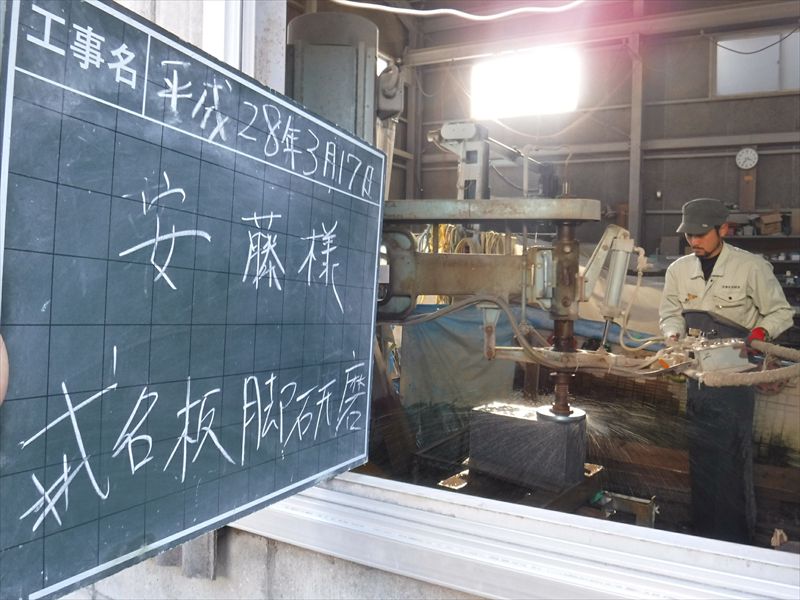 工事名 平成28年3月17日
安藤様
弐名板脚研磨